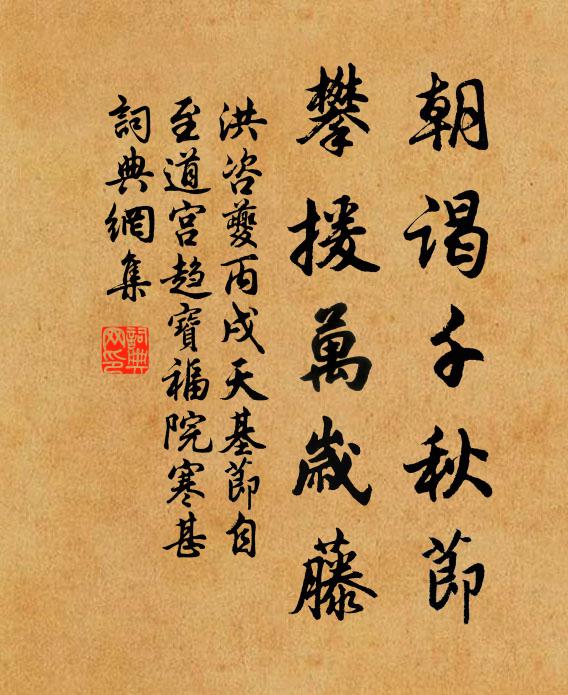 朝謁千秋節
攀援萬歲藤
洪咨夔丙戌天基節自
至道宮趨寶福院寒甚
詞典網集
詞典网印